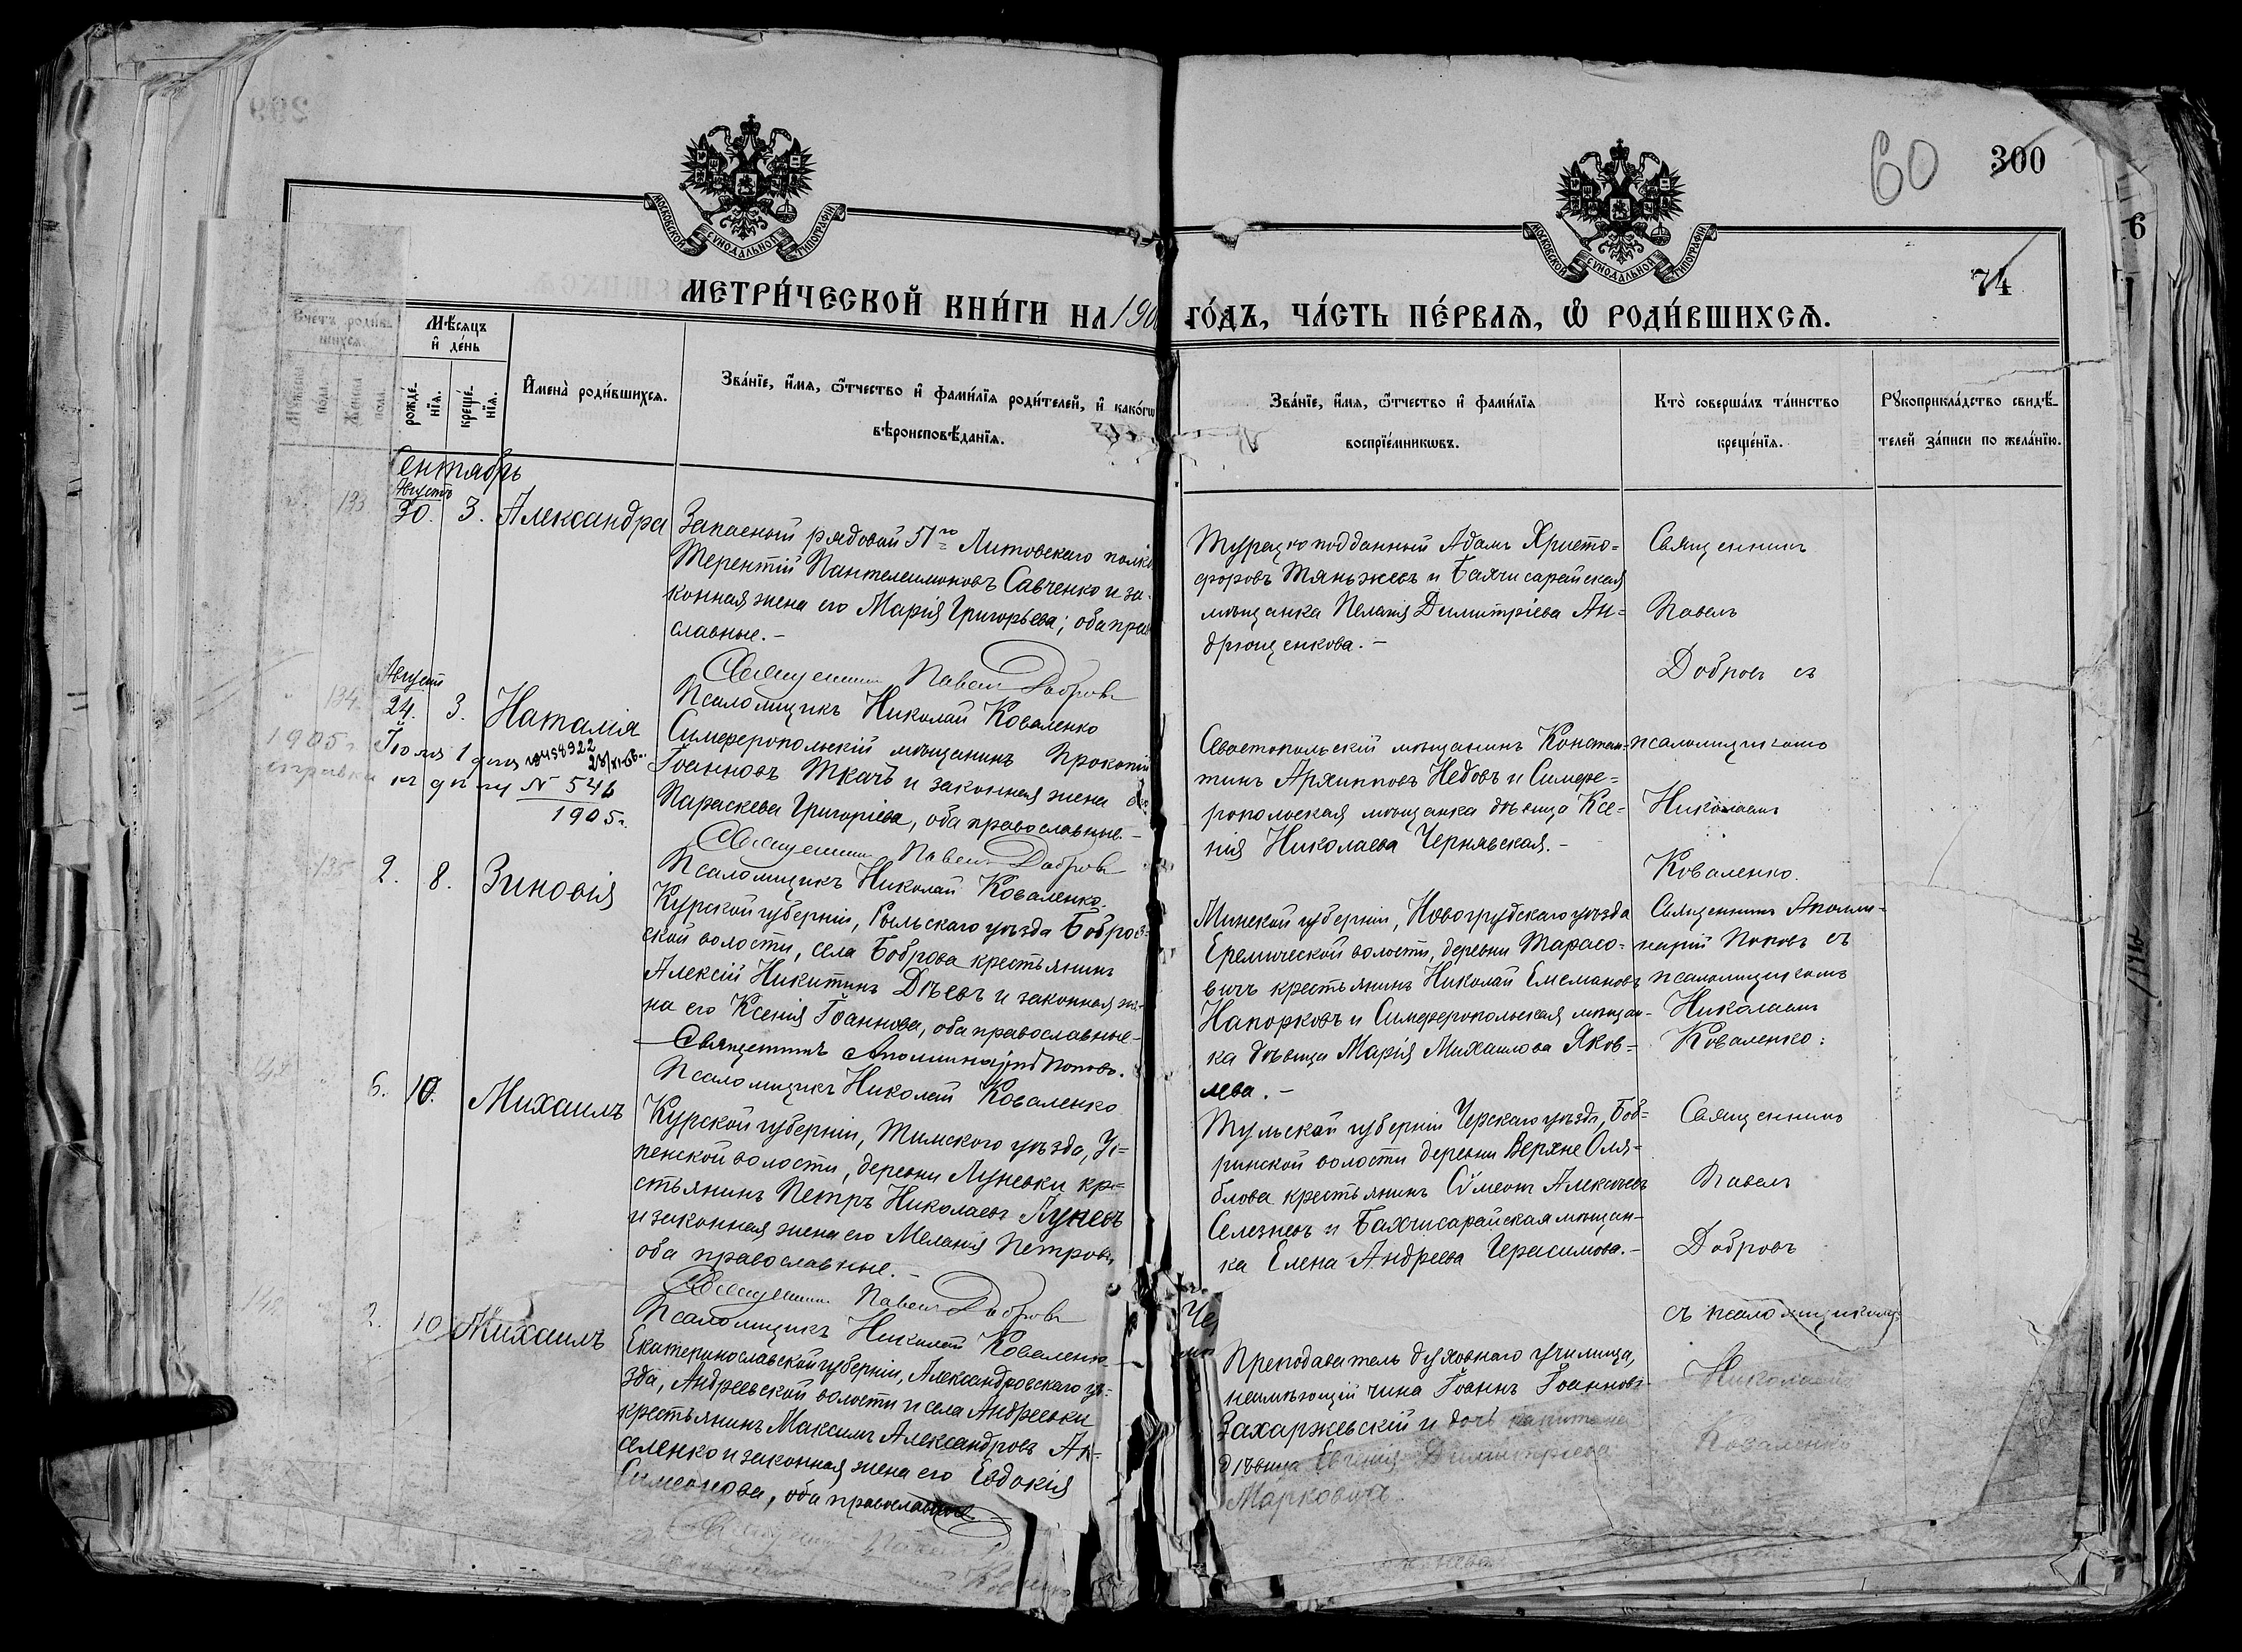 60
300
6
74
МОСКОВСКОЙ СѴНОДАЛЬНОЙ ТИПОГРАФІИ
МОСКОВСКОЙ СѴНОДАЛЬНОЙ ТИПОГРАФІИ
МЕТРИ́ЧЕСКОЙ КНИ́ГИ НА 190
ГО́ДЪ, ЧА́СТЬ ПЕ́РВАѦ, Ѡ РОДИ́ВШИХСѦ.
Счетъ родив-
шихся.
Мѣ́сяцъ
и҆ де́нь
рожде́-
нїѧ.
креще́-
нїѧ.
И҆мена̀ роди́вшихсѧ.
Зва́нїе, и҆́мѧ, ѻ҆́тчество и҆ фами́лїѧ роди́телей, и҆ како́гѡ
вѣроисповѣ́данїѧ.
Зва́нїе, и҆́мѧ, ѻ҆́тчество и҆ фами́лїѧ
воспрїе́мникѡвъ.
Кто̀ соверша́лъ та́инство
креще́нїѧ.
Рꙋкоприкла́дство свидѣ́-
телей за́писи по жела́нїю.
Сентябрь
133.
Августъ
30. 3. Александра
Запасный рядовой 51го Литовскаго полка
Терентій Пантелеимоновъ Савченко и за-
конная жена его Марія Григорьева; оба пра
славные.-
Священникъ Павелъ Добровъ
Псаломщикъ Николай Коваленко
Турецко подданный Адамъ Христо-
форовъ и Бахчисарайская
мѣщанка Пелагія Димитріева Ан-
дрющенкова.-
Священникъ
Павелъ
Добровъ съ
псаломщикомъ
Николаемъ
Коваленко.
134.
Августъ
24. 3. Наталія
1905 г.
Іюля 1 дня
справка
къ д № 546
1905 г.
Симферопольскій мѣщанинъ Прокопій
Іоанновъ Ткачъ и законная жена
Параскева Григоріева, оба православные.-
Священникъ Павелъ Добровъ
Псаломщикъ Николай Коваленко.
Севастопольскій мѣщанинъ Констан-
тинъ Архипповъ Недовъ и Симфе-
ропольская мѣщанка дѣвица Ксе-
нія Николаева Чернявская.-
135
2. 8. Зиновія
Курской губерніи, Рыльскаго уѣзда Бобров-
ской волости, села Боброва крестьянинъ
Алексій Никитинъ Дѣевъ и законная же-
на его Ксенія Іоаннова, оба православные-
Священникъ Аполлинарій Поповъ.
Псаломщикъ Николай Коваленко
Минской губерніи, Новогрудскаго уѣзда
Еремической волости, деревни Тарасо-
вичъ крестьянинъ Николай
Напорковъ и Симферопольская мѣщан-
ка дѣвица Марія Михаилова Яков-
лева.-
Священникъ Аполли-
нарій Поповъ съ
псаломщикомъ
Николаемъ
Коваленко:
6. 10. Михаилъ
Курской губерніи, Тимскаго уѣзда, Ус-
пенской волости, деревни Луневки кре-
стьянинъ Петръ Николаевъ Луневъ
и законная жена его Меланія Петрова,
оба православные.-
Священникъ Павелъ Добровъ
Псаломщикъ Николай Коваленко
Тульской губерніи Черскаго уѣзда, Боб-
ринской волости деревни Верхне
крестьянинъ Сѵмеонъ Алексѣевъ
Селезневъ и Бахчисарайская мѣщан-
ка Елена Андреева Герасимова.-
Священникъ
Павелъ
Добровъ
съ псаломщикомъ
Николаемъ
Коваленко
2. 10 Михаилъ
Екатеринославской губерніи, Александровскаго уѣ-
зда, Андреевской волости и села Андреевки
крестьянинъ Максимъ Александровъ Ан-
селенко и законная жена его Евдокія
Симеонова, оба православные.-
Преподаватель духовнаго училища,
неимѣющій чина Іоаннъ Іоанновъ
Захаржевскій и дочь капитана
дѣвица Евгенія Димитріева
Марковичъ.